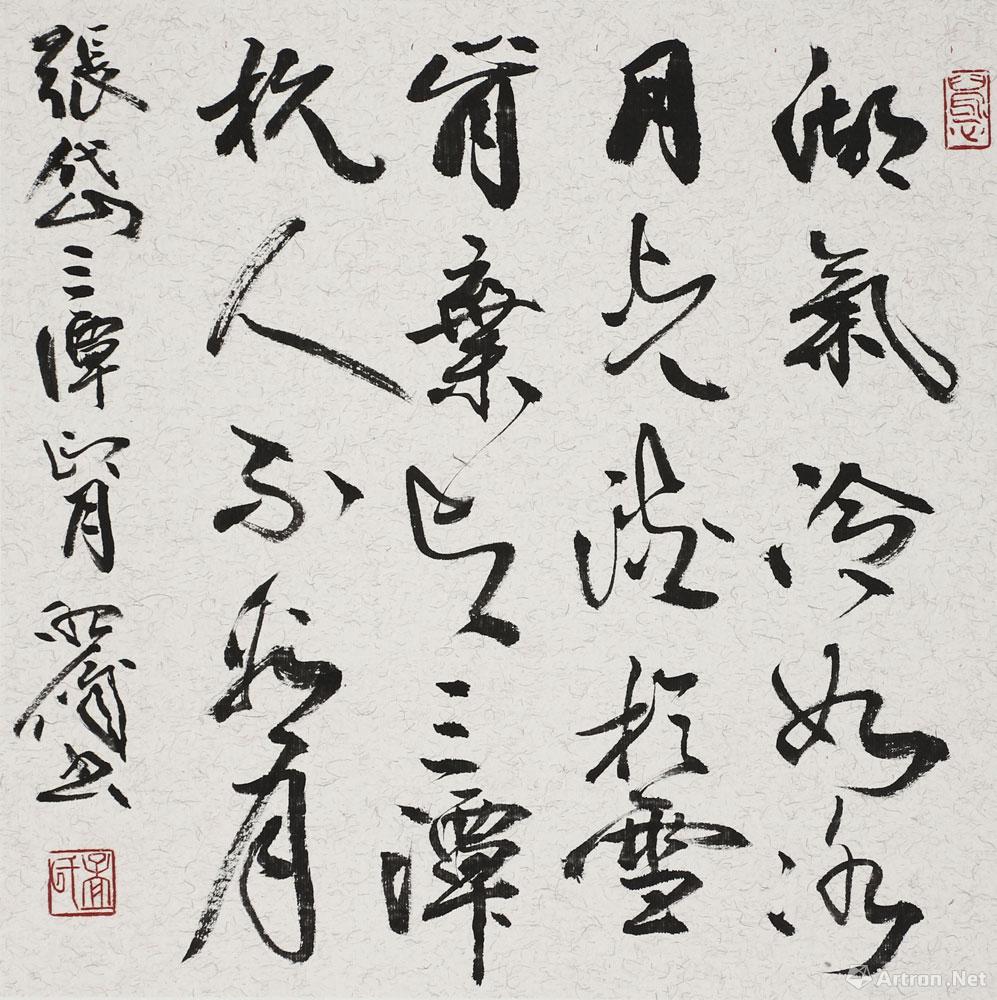 湖氣冷如冰
月光淡於雪
肯棄與三潭
杭人不看月
張岱三潭印月 書